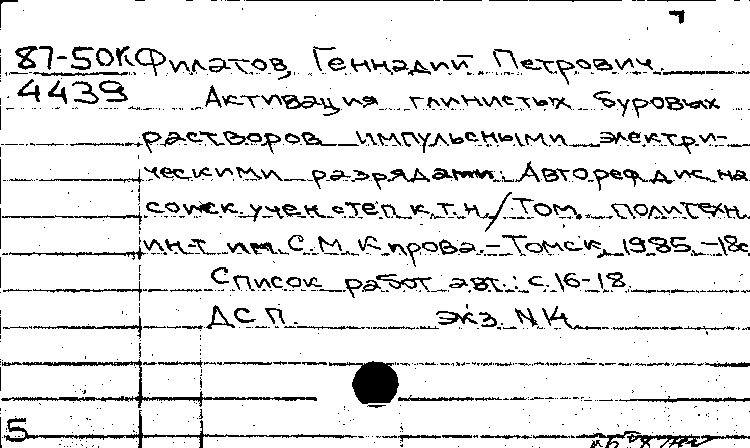 87-50К Филатов, Геннадий Петрович.
4439 Активация глинистых буровых
растворов импульсными электри-
ческими разрядами: Автореф. дис. на
соиск. учен. степ. к.т.н. / Том. политехн.
ин-т им. С.М. Кирова. - Томск, 1985. - 18с
Список работ авт.: с. 16-18.
ДСП. экз. N 14
5